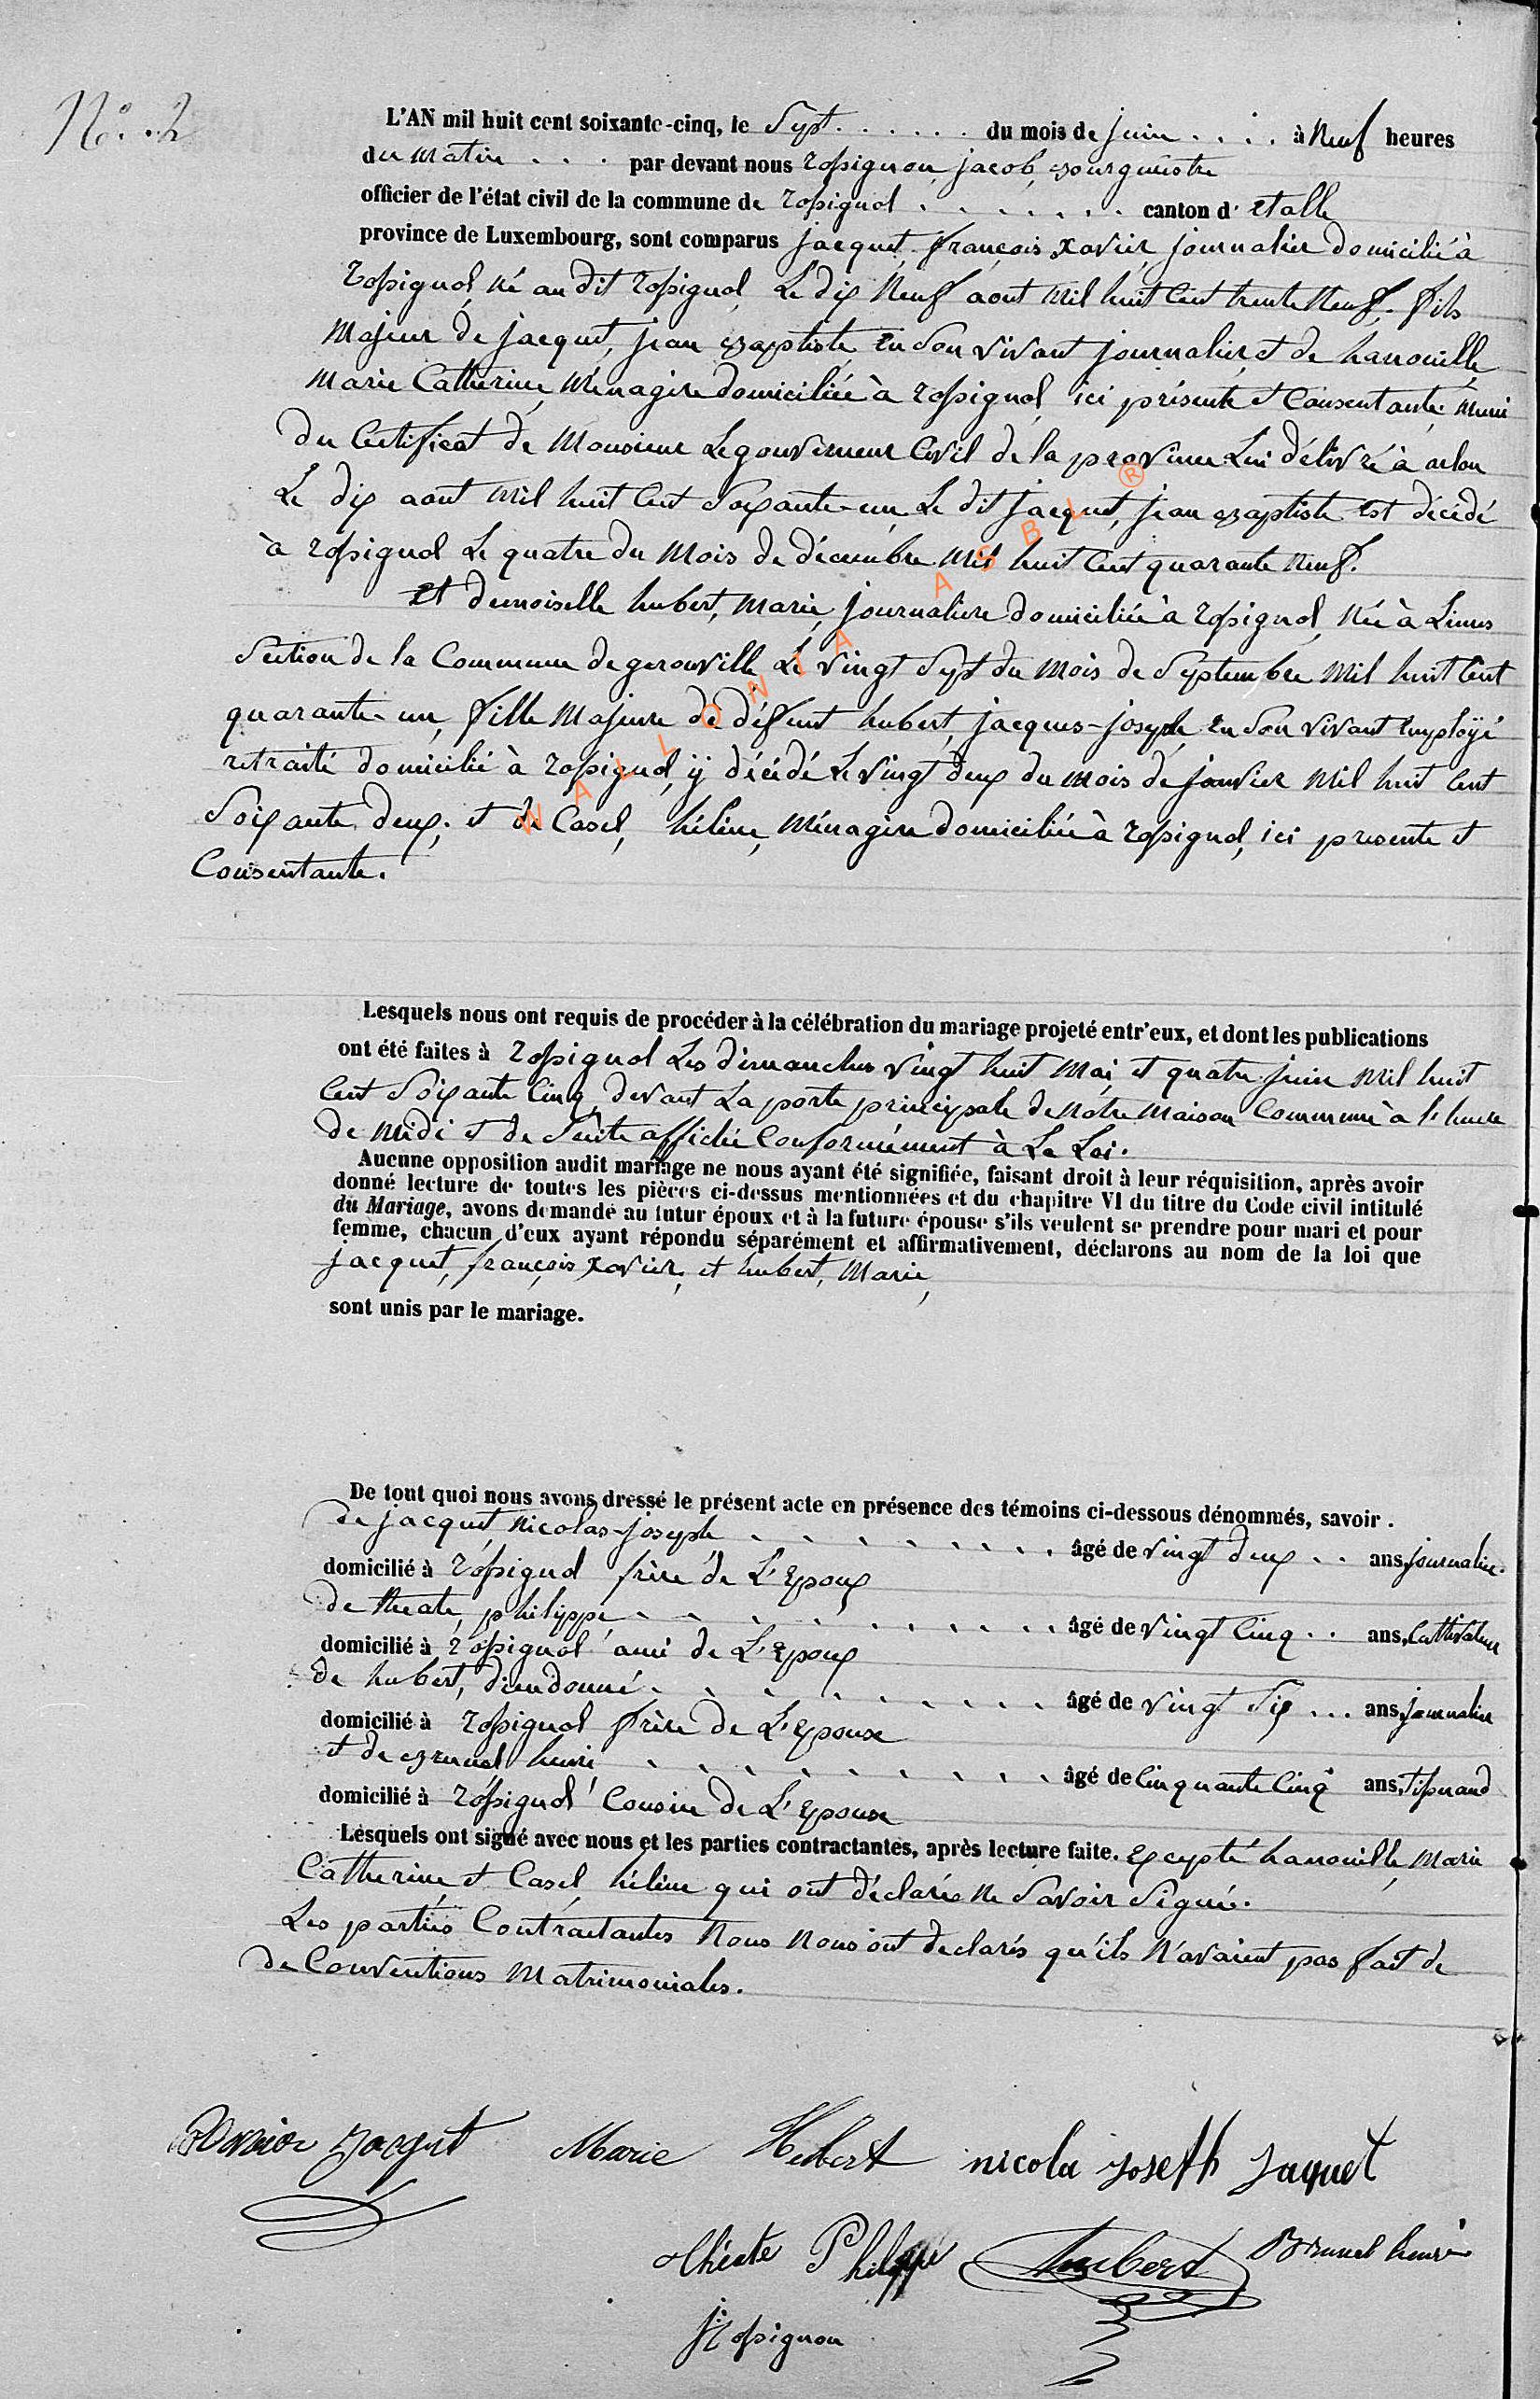 N.º 2
L'AN mil huit cent soixante-cinq, le Sept . . . . . . du mois de juin . . . . à Neuf heures
du matin . . . par devant nous rossignon, jacob, bourgmestre
officier de l'état civil de la commune de rossignol . . . . . . . canton d' Etalle
province de Luxembourg, sont comparus jacquet, françois xavier, journalier domicilié à
rossignol, né au dit rossignol, Le dix Neuf aout mil huit Cent trente Neuf, fils
Majeur de jacquet, jean baptiste, En Son vivant journalier, et de hanouille,
Marie Catherine, Ménagère domiciliée à rossignol, ici présente et Consentante, muni
du Certificat de Monsieur Le gouverneur Civil de la province Lui délivré à arlon
Le dix aout Mil huit Cent Soixante-un, Le dit jacquet, jean baptiste Est décédé
à rossignol Le quatre du Mois de décembre Mil huit Cent quarante Neuf.
Et demoiselle hubert, Marie, journalière domiciliée à rossignol, Née à Limes
Section de la Commune de gerouville, Le vingt Sept du Mois de Septembre Mil huit Cent
quarante-un, fille Majeure de défunt hubert, jacques-joseph, En Son vivant Employé
retraité domicilié à rossignol, ÿ décédé Le vingt deux du Mois de janvier Mil huit Cent
Soixante deux, et de Casel, hélène, Ménagère domiciliée à rossignol, ici presente et
Consentante.
WALLONIA ASBL ®
Lesquels nous ont requis de procéder à la célébration du mariage projeté entr'eux, et dont les publications
ont été faites à rossignol Les dimanches vingt huit Mai et quatre juin Mil huit
Cent Soixante Cinq, devant La porte principale de Notre Maison Commune à l'heure
de Midi et de Suite affichée Conformément à La Loi.
Aucune opposition audit mariage ne nous ayant été signifiée, faisant droit à leur réquisition, après avoir
donné lecture de toutes les pièces ci-dessus mentionnées et du chapitre VI du titre du Code civil intitulé
du Mariage, avons demandé au futur époux et à la future épouse s'ils veulent se prendre pour mari et pour
femme, chacun d'eux ayant répondu séparément et affirmativement, déclarons au nom de la loi que
jacquet, françois xavier, et hubert, Marie,
sont unis par le mariage.
De tout quoi nous avons dressé le présent acte en présence des témoins ci-dessous dénommés, savoir .
de jacquet Nicolas-joseph . . . . . . . . . âgé de vingt deux . . ans, journalier
domicilié à rossignol frère de L'Epoux
de theate, philippe . . . . . . . . . . âgé de vingt Cinq . . ans, Cultivateur
domicilié à rossignol ami de L'Epoux
de hubert, dieudonné . . . . . . . . . âgé de vingt Six . . . ans, journalier
domicilié à rossignol frère de L'Epouse
et de brunel henri . . . . . . . . . . âgé de Cinquante Cinq ans, Tisserand
domicilié à rossignol Cousin de L'Epouse
Lesquels ont signé avec nous et les parties contractantes, après lecture faite. Excepté hanouille, Marie
Catherine et Casel hélène qui ont déclarés Ne Savoir Signer.
Les parties Contractantes Nous Nous ont declarés qu'ils N'avaient pas fait de
de Conventions Matrimoniales.
Xavier Jacqut Marie Hubert nicola joseph jaquet
théate Philippe hubert Brunel henri
j rossignon